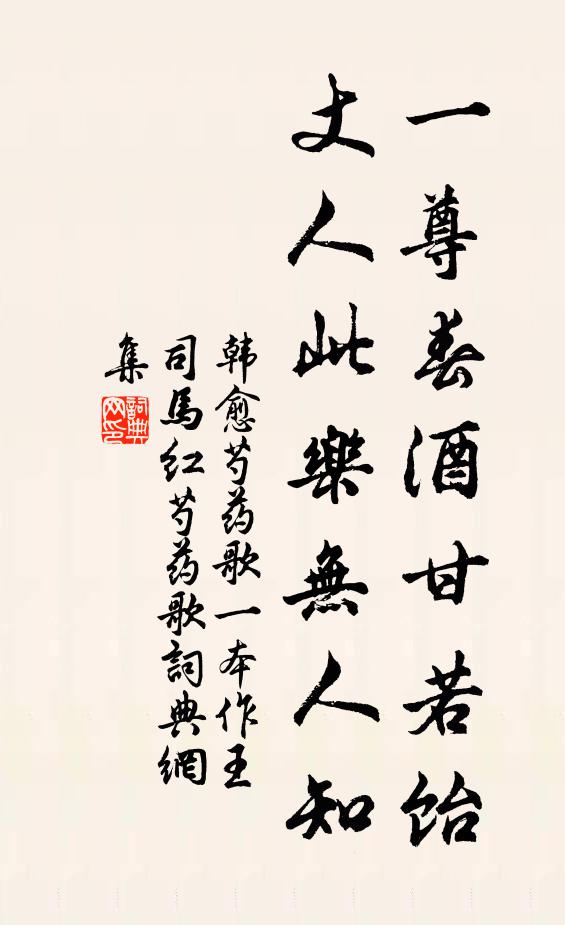 一尊春酒甘若飴
丈人此樂無人知
韩愈芍药歌一本作王
司馬红芍药歌詞典網
集
詞典网印